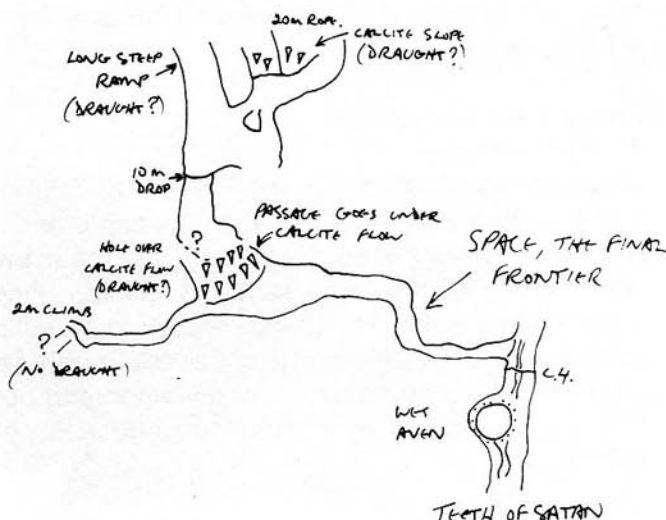 20m ROPE.
CALCITE SLOPE
(DRAUGHT?)
LONG STEEP
RAMP
(DRAUGHT?)
10m
DROP
PASSAGE GOES UNDER
CALCITE FLOW
?
HOLE OVER
CALCITE FLOW
(DRAUGHT?)
SPACE, THE FINAL
FRONTIER
2m CLIMB
?
(NO DRAUGHT)
C.4.
WET
AVEN
TEETH OF SATAN